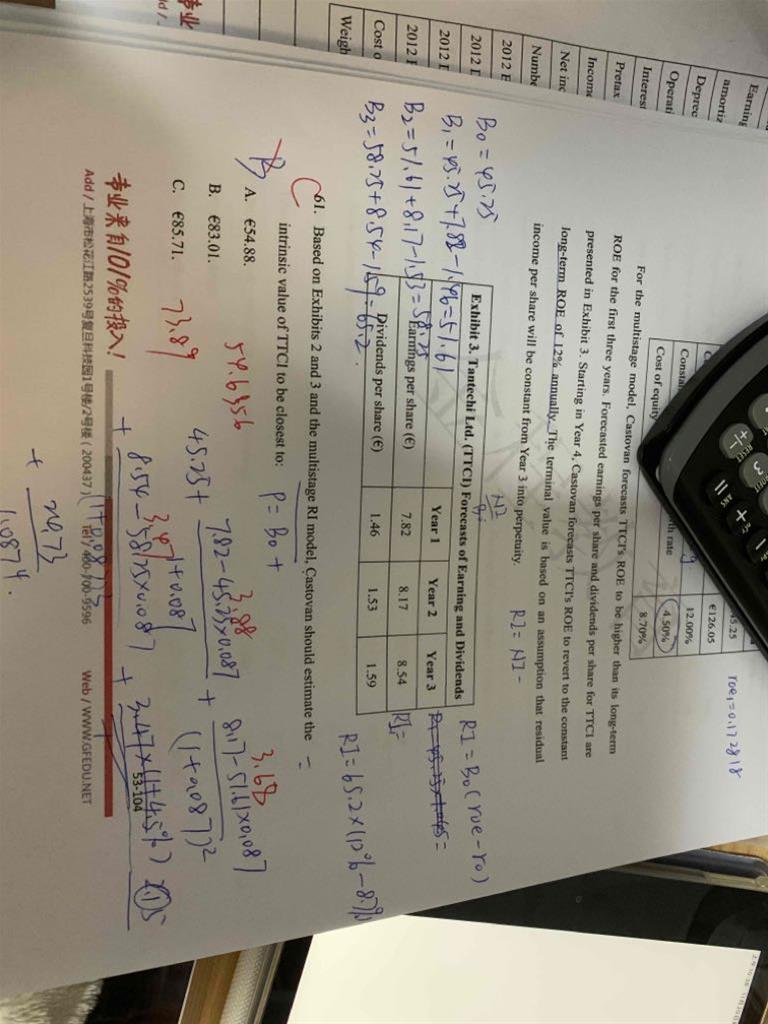 Earning
amortiz
Deprec
Operati
Interest
Pretax
Income
Net inc
Numbe
2012 E
2012 D
2012 I
2012 F
Cost o
Weigh
45.25
€126.05
Constan
12.00%
th rate
4.50%
Cost of equity
8.70%
roe₁=0.172818
For the multistage model, Castovan forecasts TTCI's ROE to be higher than its long-term
ROE for the first three years. Forecasted earnings per share and dividends per share for TTCI are
presented in Exhibit 3. Starting in Year 4, Castovan forecasts TTCI's ROE to revert to the constant
long-term ROE of 12% annually. The terminal value is based on an assumption that residual
income per share will be constant from Year 3 into perpetuity.
RI = NI -
B0 = 45.25
B1 = 45.25+7.82-1.46=51.61
B2 = 51.61+8.17-1.53=58.25
B3 = 58.25+8.54-1.59=65.2
Exhibit 3. Tantechi Ltd. (TTCI) Forecasts of Earning and Dividends
Year 1 Year 2 Year 3
Earnings per share (€) 7.82 8.17 8.54
Dividends per share (€) 1.46 1.53 1.59
RI = B0 (roe-r0)
RI=
RI=65.2×(12%-8.7%)
61. Based on Exhibits 2 and 3 and the multistage RI model, Castovan should estimate the
intrinsic value of TTCI to be closest to:
P = B0 +
A. €54.88.
B. €83.01.
C. €85.71.
B
54.6356
73.89
3.88
3.68
45.25 + 7.82-45.25×0.087 + 8.17-51.61×0.087
1+0.087
(1+0.087)²
3.47
+ 8.54-58.25×0.087 + 3.47×(1+4.5%)
2.15
+ 20.73
1.0874.
53-104
专业来自101%的投入!
Add / 上海市松花江路2539号复旦科技园1号楼/2号楼 ( 200437 ) Tel / 400-700-9596 Web / WWW.GFEDU.NET
专业